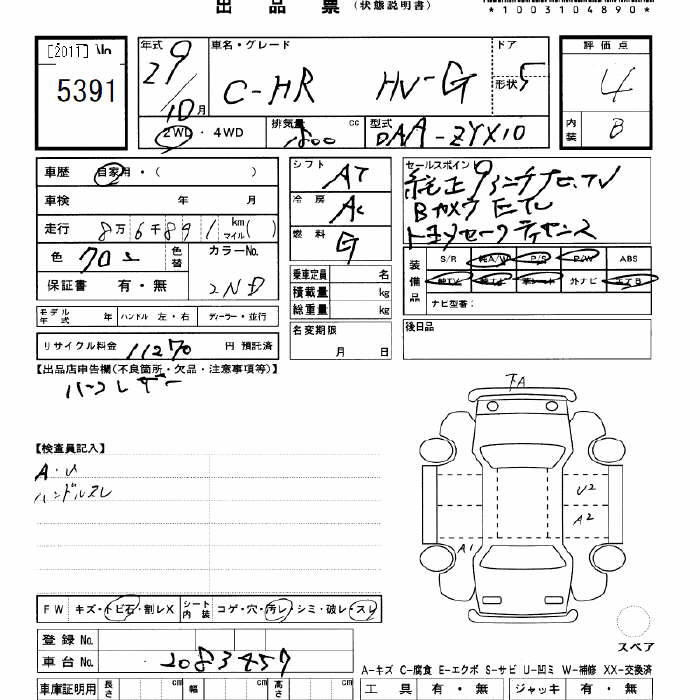 出品票 (状態説明書)
*1003104890*
[2017]
5391
年式 29 10月
車名・グレード C-HR HV-G
ドア 形状 5
評価点 4
内装 B
2WD・4WD 排気量 1800 cc 型式 DAA-ZYX10
車歴 自家用・( )
車検 年 月
走行 8万6千891 km マイル( )
色 クロ2 色替 カラーNo. 2ND
保証書 有・無
シフト AT
冷房 AC
燃料 G
乗車定員 名
積載量 kg
総重量 kg
名変期限 月 日
セールスポイント
純正9インチナビTV
Bカメラ ETC
トヨタセーフティセンス
装備品 S/R 純A/W P/S P/W ABS
純TV 革シート 外ナビ エアB
ナビ型番:
後日品
モデル年式 年 ハンドル 左・右 ディーラー・並行
リサイクル料金 11270 円 預託済
【出品店申告欄(不良箇所・欠品・注意事項等)】
ハーフレザー
【検査員記入】
A・U
ハンドルスレ
下A
U2
A2
A1
スペア
FW キズ・トビ石・割レX シート内装 コゲ・穴・汚レ・シミ・破レ・スレ
登録No.
車台No. 2083457
A-キズ C-腐食 E-エクボ S-サビ U-凹ミ W-補修 XX-交換済
車庫証明用 長さ cm 幅 cm 高さ cm
工具 有・無 ジャッキ 有・無